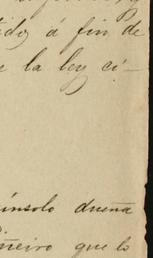 tidos á fin de
e la ley ci-
ínsolo dueña
iñeiro que lo